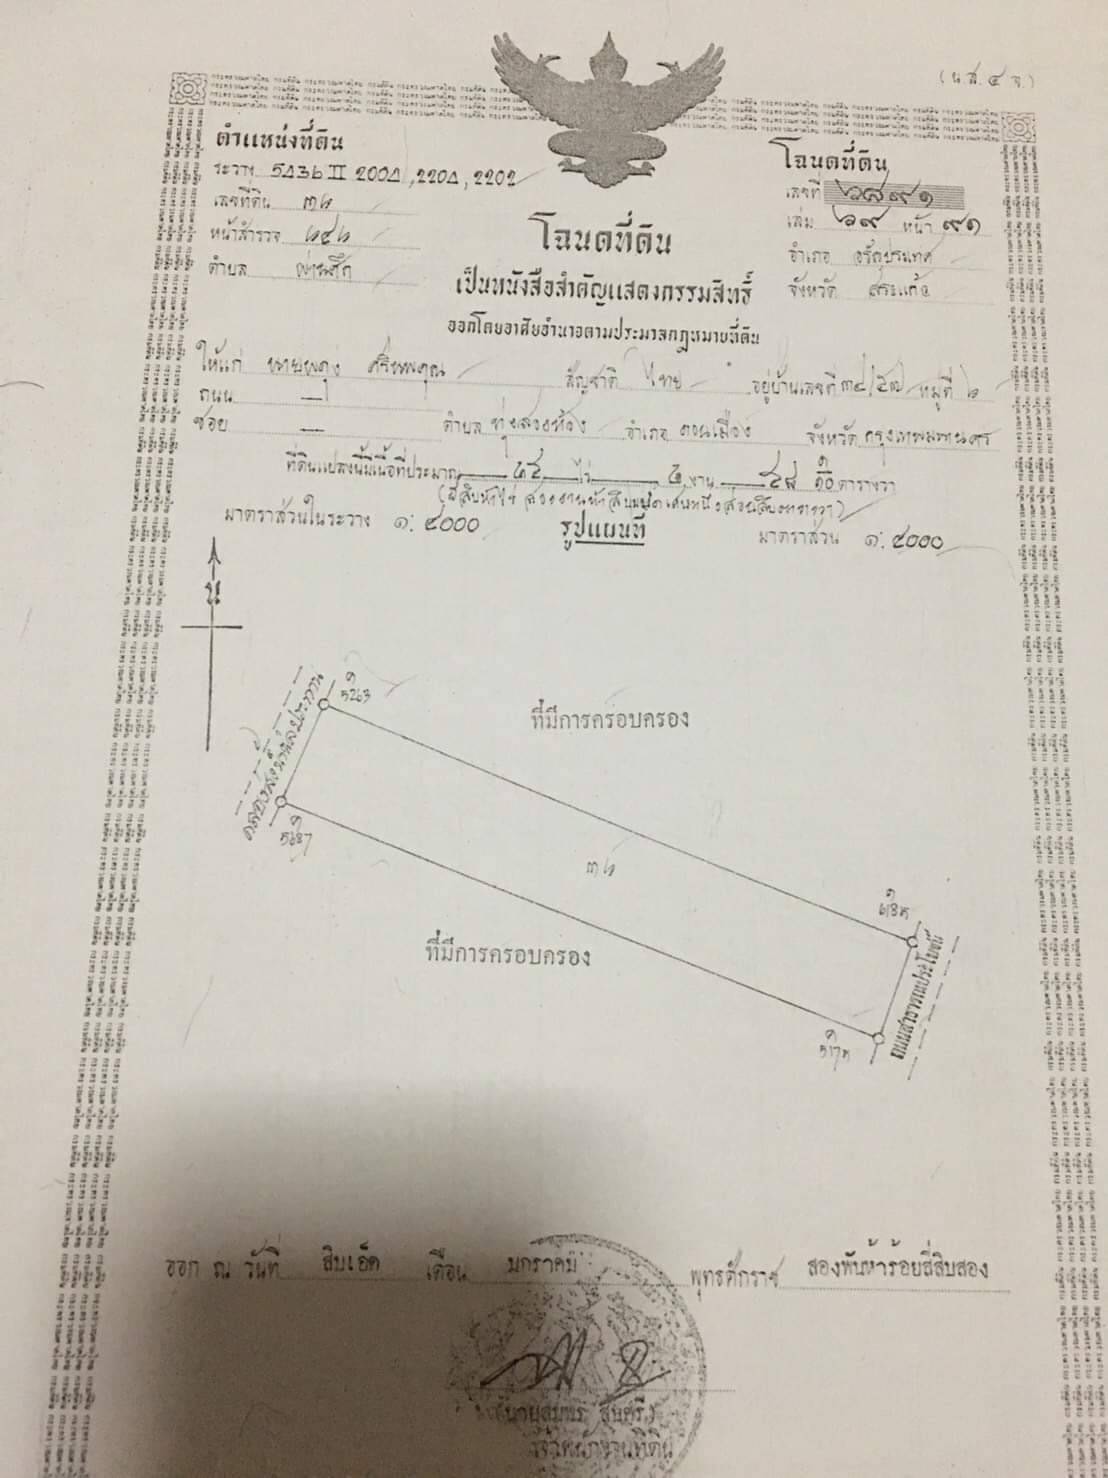 (น.ส. ๔ จ.)
ตำแหน่งที่ดิน
ระวาง 5436 II 2004, 2204, 2202
เลขที่ดิน ๓๒
หน้าสำรวจ ๒๔๒
ตำบล ผ่านศึก
โฉนดที่ดิน
เลขที่ ๖๘๙๑
เล่ม ๖๙ หน้า ๙๑
อำเภอ อรัญประเทศ
จังหวัด สระแก้ว
โฉนดที่ดิน
เป็นหนังสือสำคัญแสดงกรรมสิทธิ์
ออกโดยอาศัยอำนาจตามประมวลกฎหมายที่ดิน
ให้แก่ นายผดุง สัญชาติ ไทย อยู่บ้านเลขที่ ๓๔/๕๗ หมู่ที่ ๖
ถนน —
ซอย — ตำบล ทุ่งสองห้อง อำเภอ ดอนเมือง จังหวัด กรุงเทพมหานคร
ที่ดินแปลงนี้มีเนื้อที่ประมาณ ไร่ ๒ งาน ๕๘ ๑/๑๐ ตารางวา
มาตราส่วนในระวาง ๑: ๔๐๐๐ รูปแผนที่ มาตราส่วน ๑: ๔๐๐๐
น
คลองส่งน้ำชลประทาน
5263
ที่มีการครอบครอง
5687
๓๒
ที่มีการครอบครอง
ถนนสาธารณประโยชน์
ออก ณ วันที่ สิบเอ็ด เดือน มกราคม พุทธศักราช สองพันห้าร้อยสี่สิบสอง
เจ้าพนักงานที่ดิน